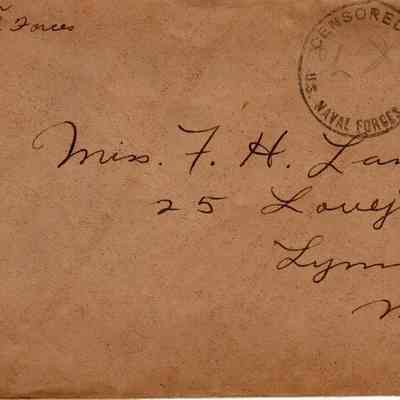 Forces
CENSORED
U.S. NAVAL FORCES
Miss. F. H. Lan
25 Lovej
Lynn
M